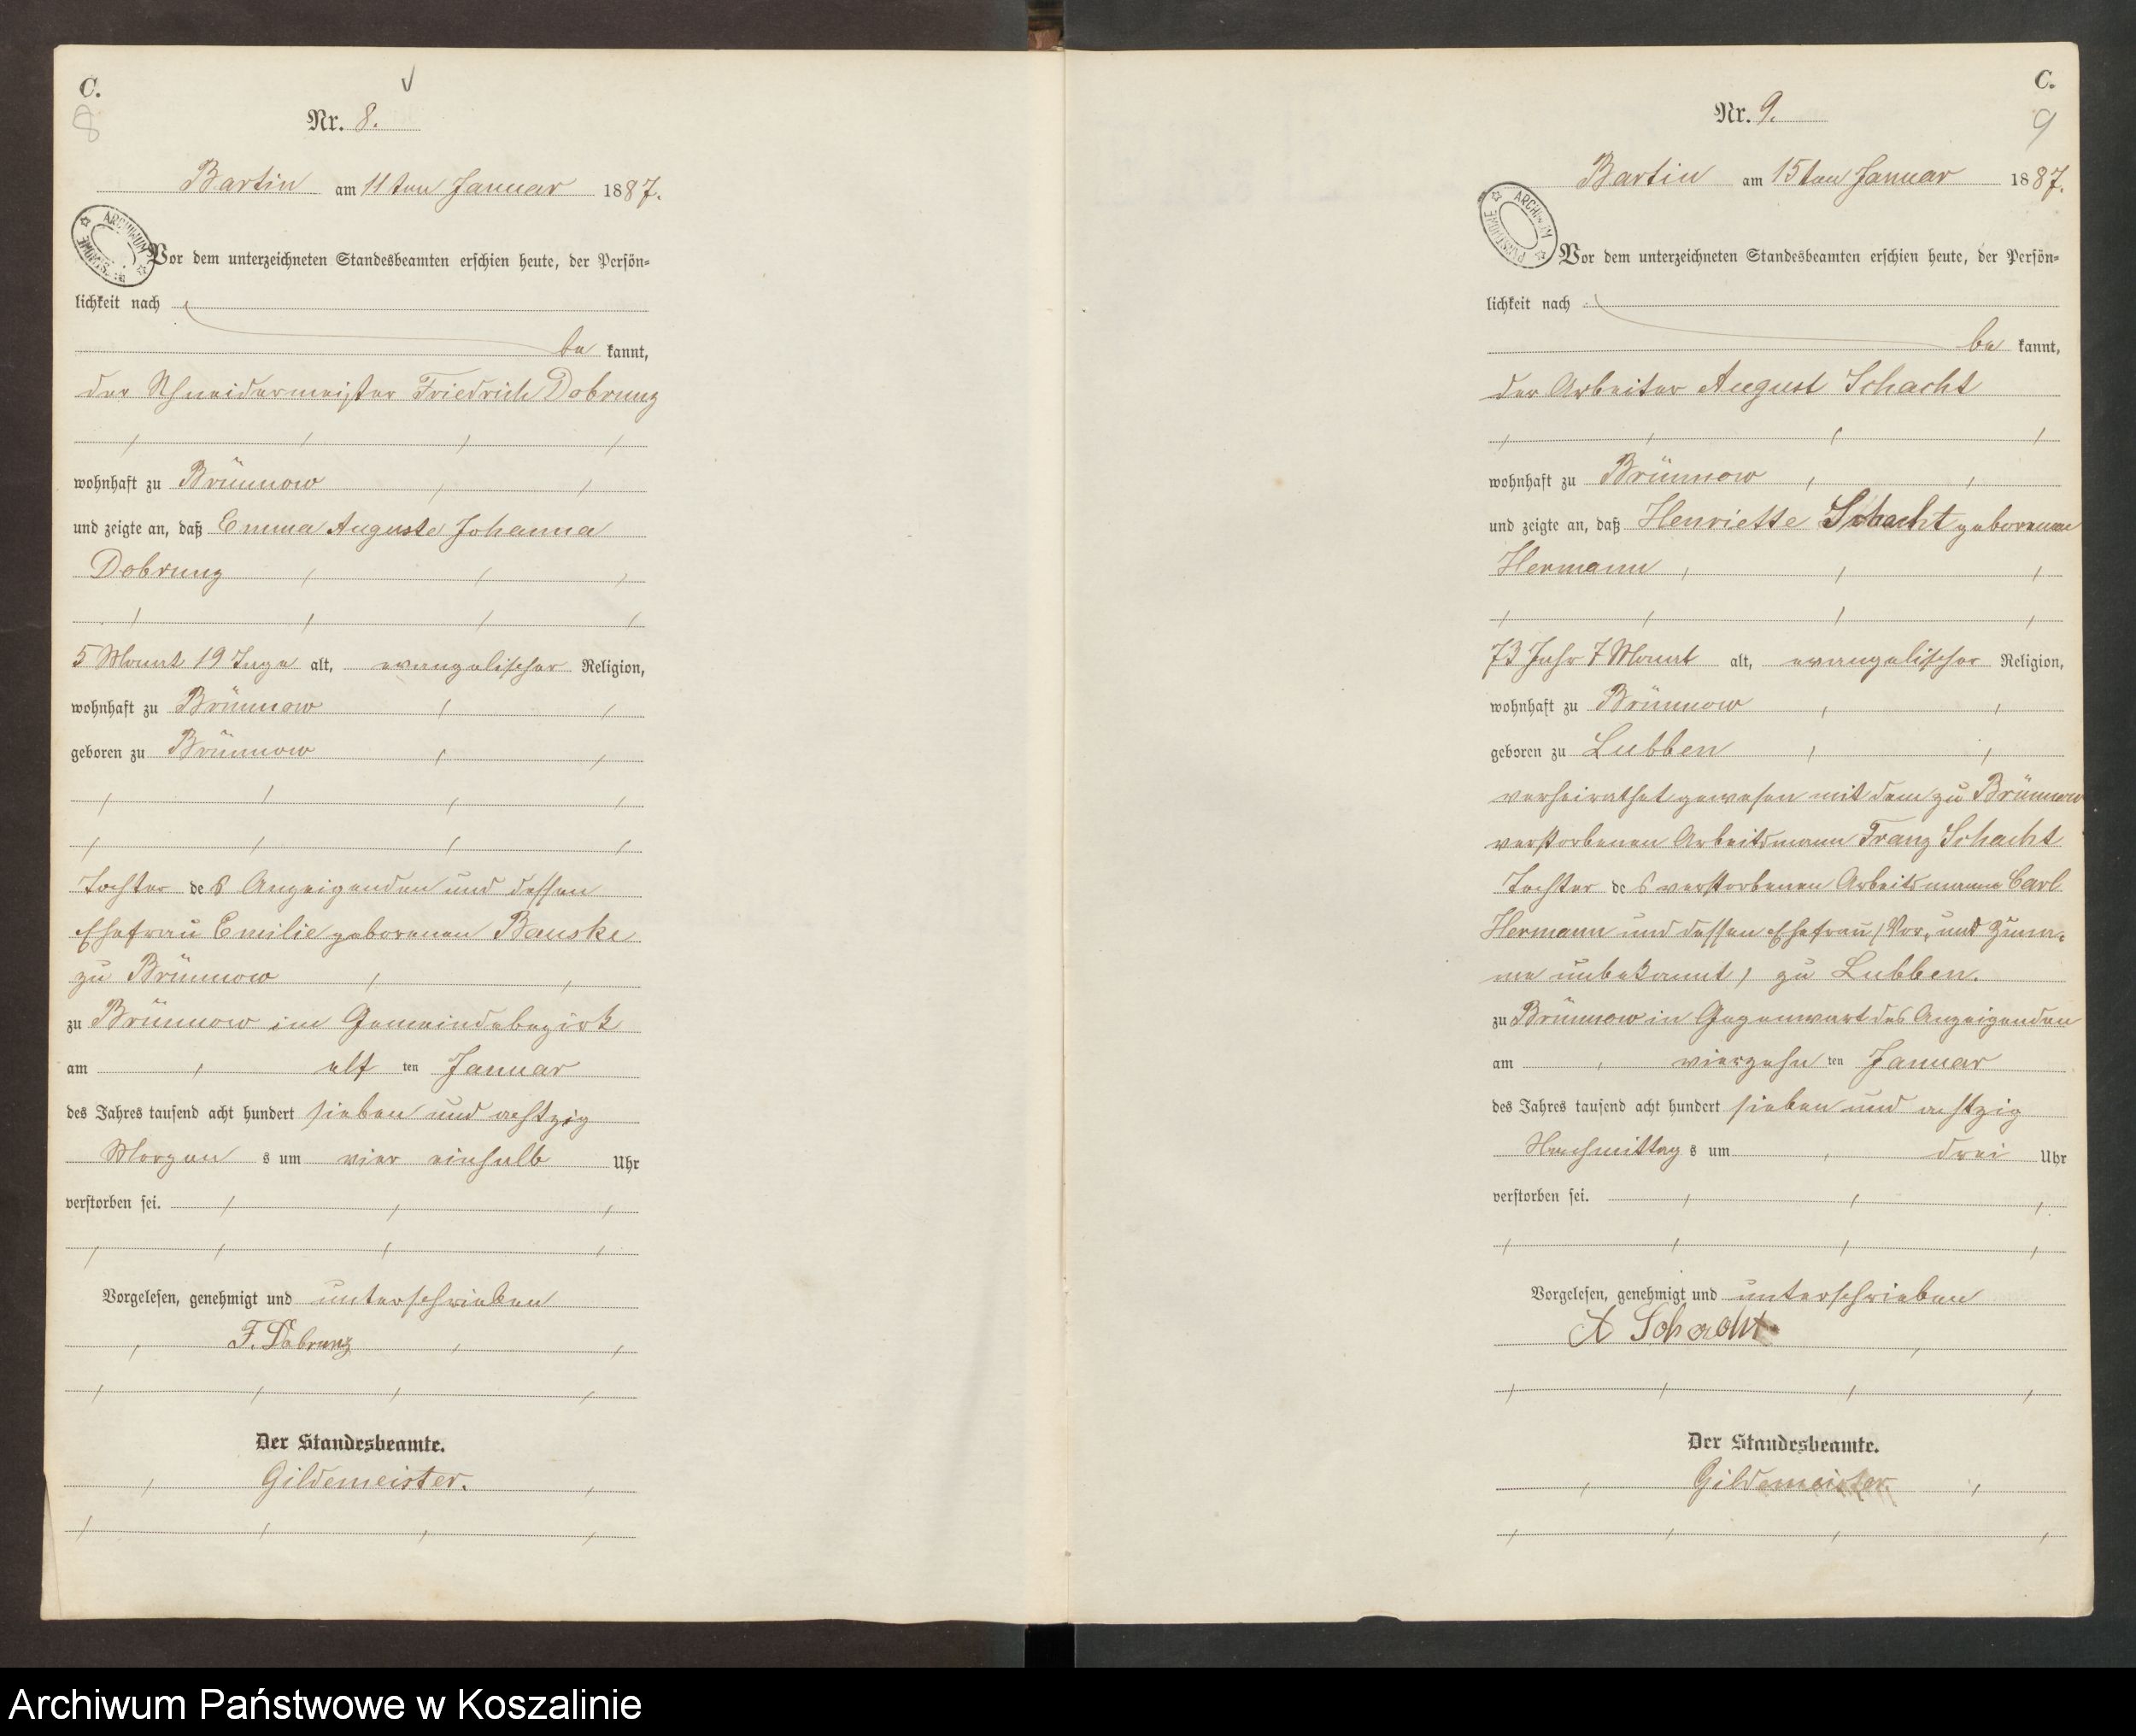 C.
8
Nr. 8.
Bartin am 11ten Januar 1887.
ARCHIWUM
Vor dem unterzeichneten Standesbeamten erschien heute, der Persön=
lichkeit nach
be kannt,
der Schneidermeister Friedrich Dobrunz
wohnhaft zu Brünnow
und zeigte an, daß Emma Auguste Johanna
Dobrunz
5 Monat 19 Tage alt, evangelischer Religion,
wohnhaft zu Brünnow
geboren zu Brünnow
Tochter des Anzeigenden und dessen
Ehefrau Emilie geborenen Bauske
zu Brünnow
zu Brünnow im Gemeindebezirk
am elf ten Januar
des Jahres tausend acht hundert sieben und achtzig
Morgen s um vier einhalb Uhr
verstorben sei.
Vorgelesen, genehmigt und unterschrieben
F. Dobrunz
Der Standesbeamte.
Gildemeister.
C.
9
Nr. 9.
Bartin am 15ten Januar 1887.
ARCHIWUM
Vor dem unterzeichneten Standesbeamten erschien heute, der Persön=
lichkeit nach
be kannt,
der Arbeiter August Schacht
wohnhaft zu Brünnow
und zeigte an, daß Henriette Schacht geborenen
Hermann
73 Jahr 7 Monat alt, evangelischer Religion,
wohnhaft zu Brünnow
geboren zu Lubben
verheirathet gewesen mit dem zu Brünnow
verstorbenen Arbeitsmann Franz Schacht
Tochter des verstorbenen Arbeitsmanns Carl
Hermann und dessen Ehefrau /Vor- und Zuna=
me unbekannt/ zu Lubben.
zu Brünnow in Gegenwart des Anzeigenden
am vierzehn ten Januar
des Jahres tausend acht hundert sieben und achtzig
Nachmittag s um drei Uhr
verstorben sei.
Vorgelesen, genehmigt und unterschrieben
A Schacht
Der Standesbeamte.
Gildemeister.
Archiwum Państwowe w Koszalinie